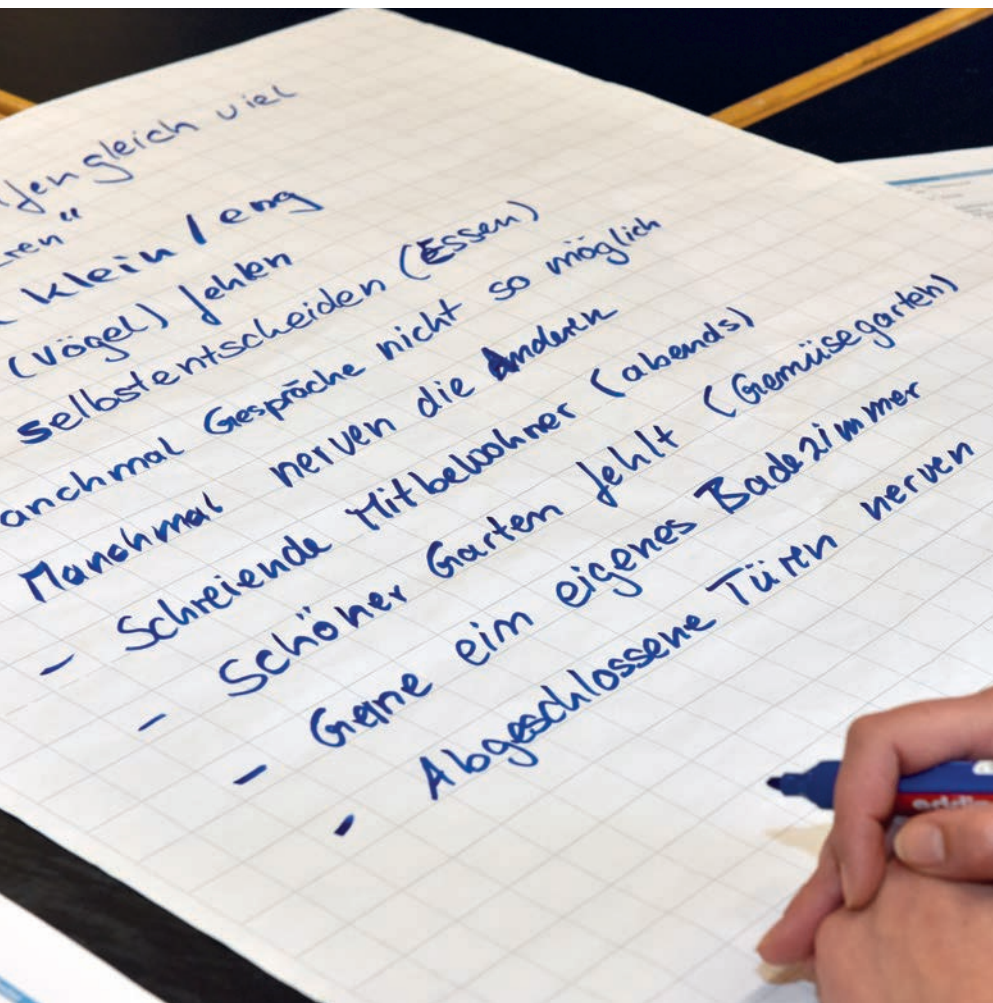 gleich viel
klein / eng
(Vögel) fehlen
selbstentscheiden (Essen)
anchmal Gespräche nicht so möglich
Manchmal nerven die Anderen
- Schreiende Mitbewohner (abends)
- Schöner Garten fehlt (Gemüsegarten)
- Gerne ein eigenes Badezimmer
- Abgeschlossene Türen nerven